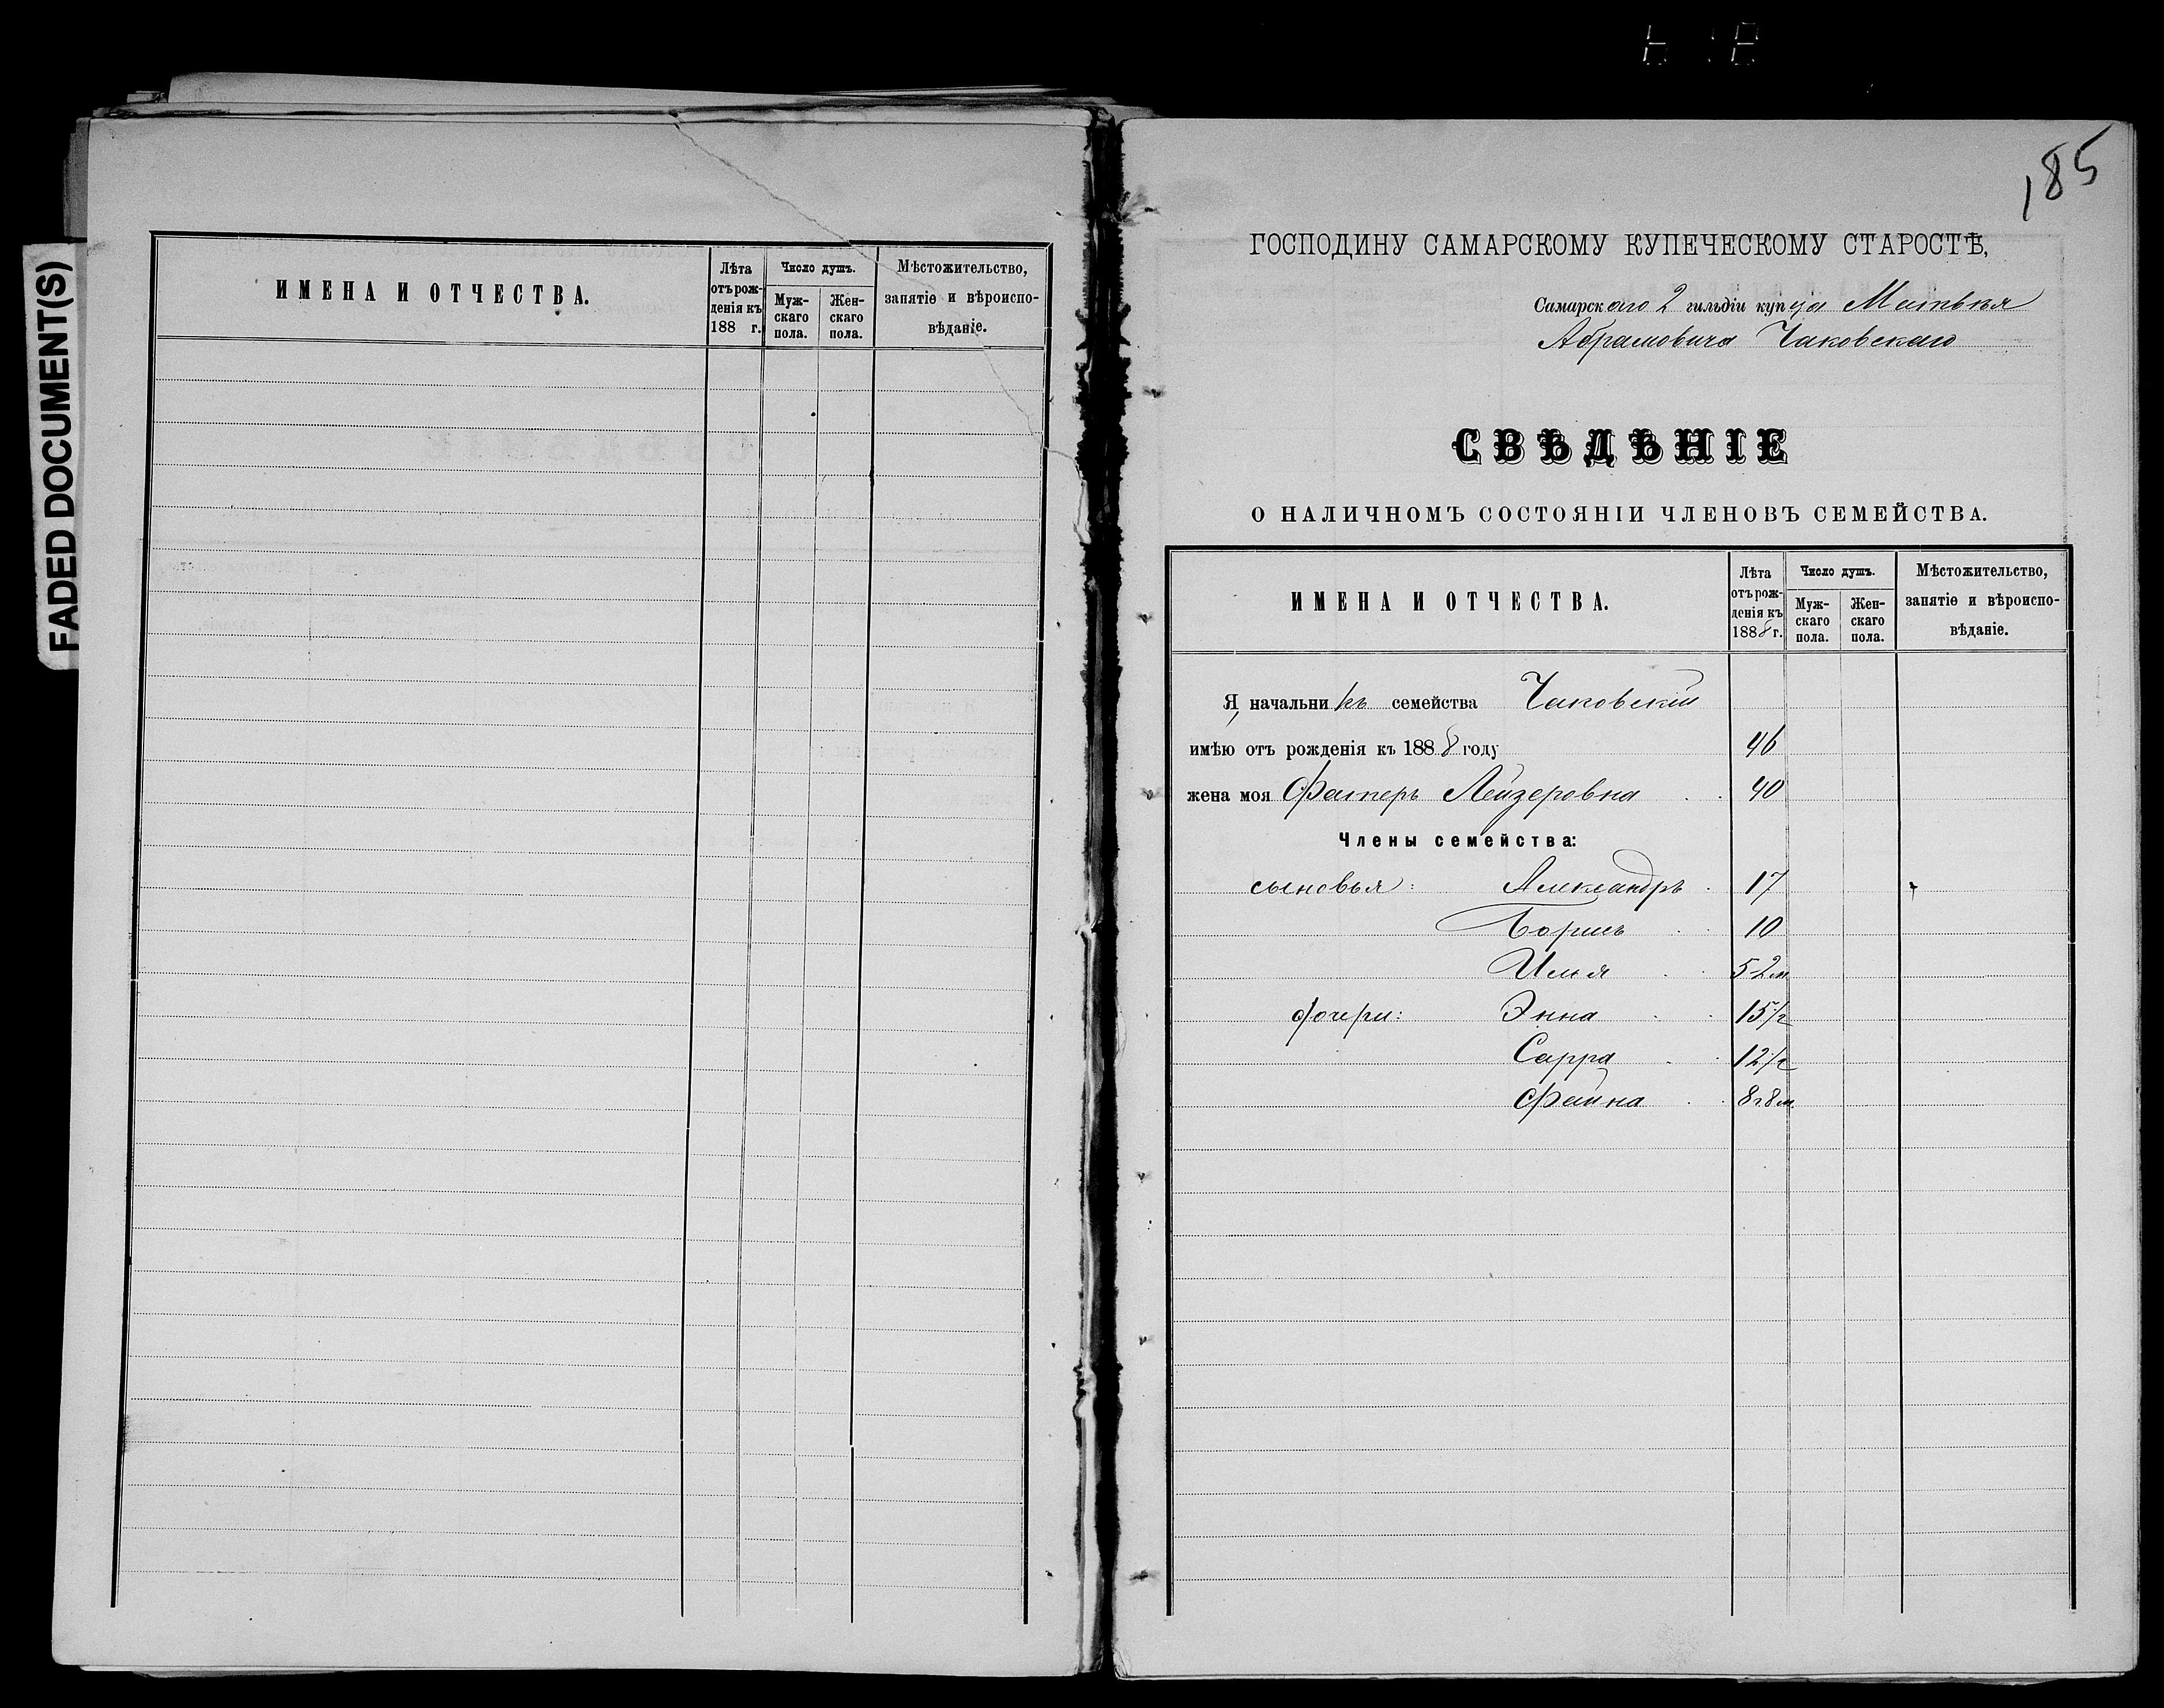 FADED DOCUMENT(S)
ИМЕНА И ОТЧЕСТВА.
Лѣта
отъ рож-
денія къ
188 г.
Число душъ.
Муж-
скаго
пола.
Жен-
скаго
пола.
Мѣстожительство,
занятіе и вѣроиспо-
вѣданіе.
185
ГОСПОДИНУ САМАРСКОМУ КУПЕЧЕСКОМУ СТАРОСТѢ,
Самарскаго 2 гильдіи купца Матвѣя
Абрамовича Чаковскаго
СВѢДѢНІЕ
О НАЛИЧНОМЪ СОСТОЯНІИ ЧЛЕНОВЪ СЕМЕЙСТВА.
ИМЕНА И ОТЧЕСТВА.
Лѣта
отъ рож-
денія къ
1888 г.
Число душъ.
Муж-
скаго
пола.
Жен-
скаго
пола.
Мѣстожительство,
занятіе и вѣроиспо-
вѣданіе.
Я, начальникъ семейства Чаковскій
имѣю отъ рожденія къ 1888 году 46
жена моя Лейзеровна 40
Члены семейства:
сыновья: Александръ 17
Борисъ 10
Илья 5-2м
дочери: Энна 15 1/2
Сарра 12 1/2
Фаина 8г8м.